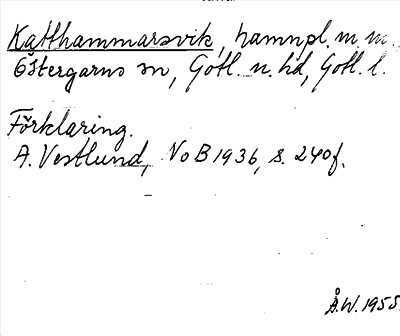 Katthammarsvik, hamnpl. m. m.
Östergarns sn, Gotl. n. hd, Gotl. l.
Förklaring.
A. Vestlund, NoB 1936, s. 240 f.
Å.W. 1955.